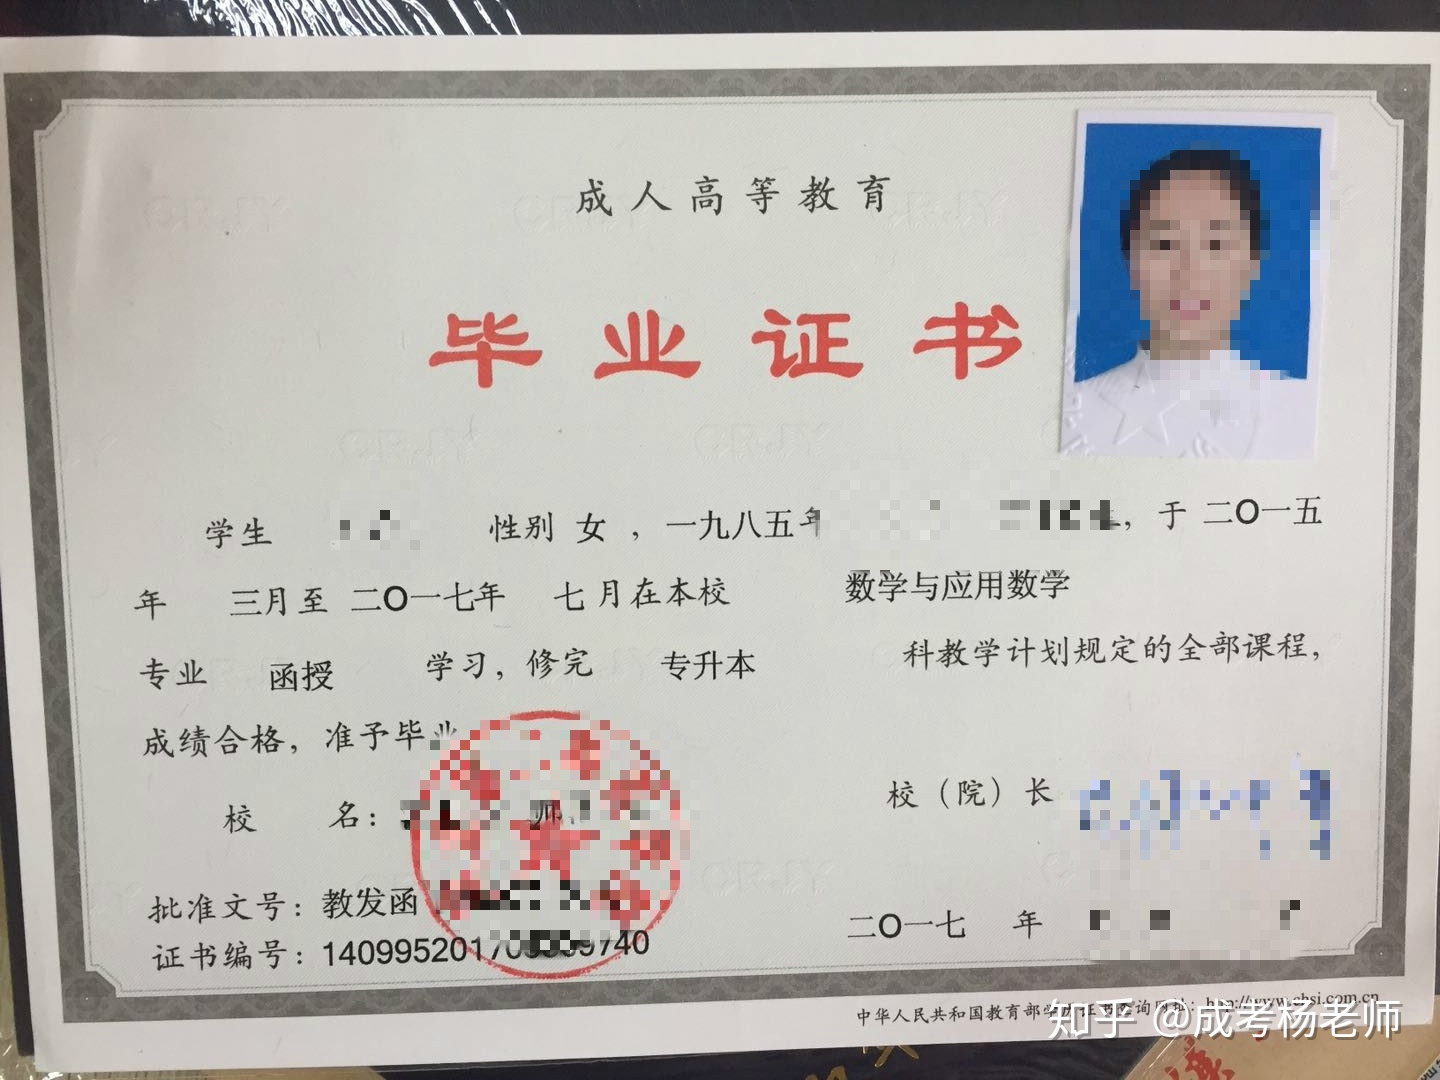 成人高等教育
毕业证书
学生 性别 女，一九八五年 ，于 二〇一五
年 三月至 二〇一七年 七月在本校 数学与应用数学
专业 函授 学习，修完 专升本 科教学计划规定的全部课程，
成绩合格，准予毕业
校 名： 师
校（院）长
批准文号：教发函
二〇一七 年
证书编号：
中华人民共和国教育部学历证书查询网址：http://www.chsi.com.cn
知乎 @成考杨老师